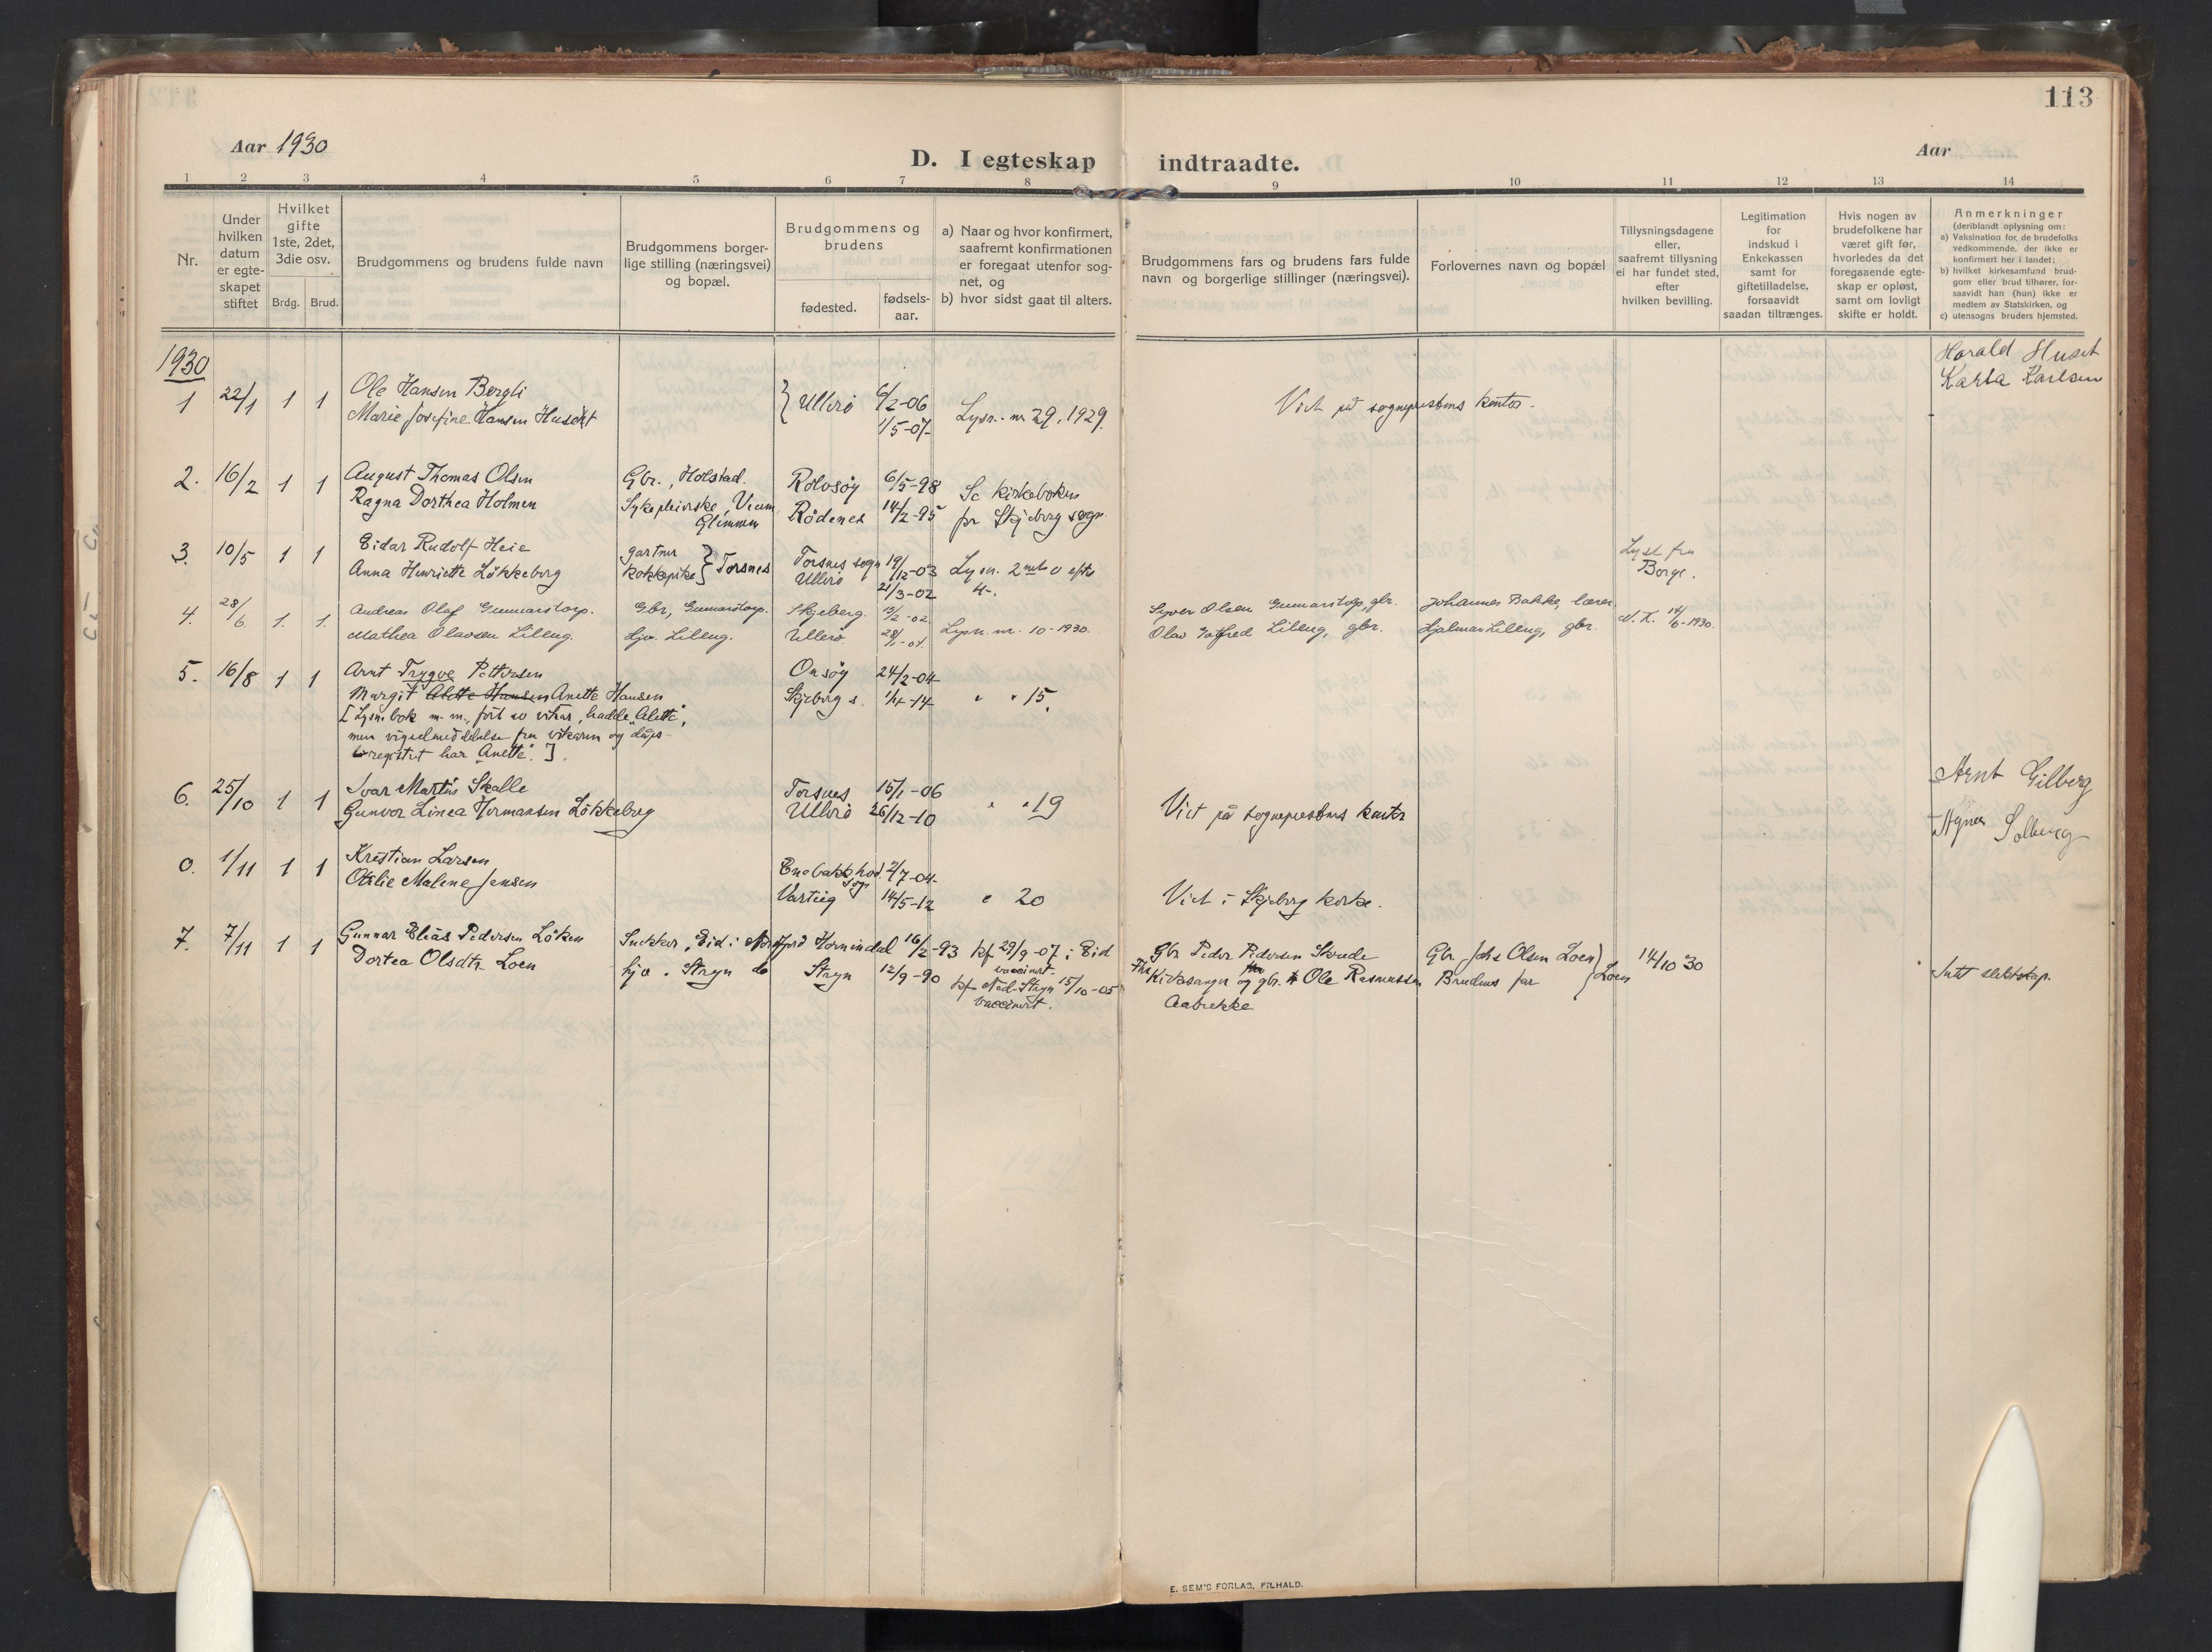 113
Aar 1930
D. I egteskap indtraadte.
Aar
1 2 3 4 5 6 7 8 9 10 11 12 13 14
Nr.
Under
hvilken
datum
er egte-
skapet
stiftet
Hvilket
gifte
1ste, 2det,
3die osv.
Brdg. Brud.
Brudgommens og brudens fulde navn
Brudgommens borger-
lige stilling (næringsvei)
og bopæl.
Brudgommens og
brudens
fødested.
fødsels-
aar.
a) Naar og hvor konfirmert,
saafremt konfirmationen
er foregaat utenfor sog-
net, og
b) hvor sidst gaat til alters.
Brudgommens fars og brudens fars fulde
navn og borgerlige stillinger (næringsvei).
Forlovernes navn og bopæl
Tillysningsdagene
eller,
saafremt tillysning
ei har fundet sted,
efter
hvilken bevilling.
Legitimation
for
indskud i
Enkekassen
samt for
giftetilladelse,
forsaavidt
saadan tiltrænges.
Hvis nogen av
brudefolkene har
været gift før,
hvorledes da det
foregaaende egte-
skap er opløst,
samt om lovligt
skifte er holdt.
Anmerkninger
(deriblandt oplysning om:
a) Vaksination for de brudefolks
vedkommende, der ikke er
konfirmert her i landet;
b) hvilket kirkesamfund brud-
gom eller brud tilhører, for-
saavidt han (hun) ikke er
medlem av Statskirken, og
c) utensogns bruders hjemsted.
1930
1 22/1 1 1 Ole Hansen Bergli } Ullerö 6/2-06 Lysn. nr 29, 1929. Viet på sogneprestens kontor. Harald Huset
Marie Josefine Hansen Huset 1/5-07 Karla Karlsen
2. 16/2 1 1 August Thomas Olsen Gbr., Holstad. Rolvsöy 6/5-98 Se kirkeboken
Ragna Dorthea Holmen Sykepleierske, Veum Glemmen Rödenes 14/2-95 for Skjeberg sogn
3. 10/5 1 1 Eidar Rudolf Heie gartner } Torsnes Torsnes sogn 19/12-03 Lysn. Lyst fra
Anna Henriette Lökkeberg kokkepike Ullerö 21/3-02 Borge.
4. 28/6 1. 1. Andreas Olaf Gunnarstorp. Gbr, Gunnarstorp. Skjeberg. 13/2-02 Lysn. nr. 10-1930. Syver Olsen Gunnarstorp, gbr. Johannes Bakke, lærer. N.T. 14/6-1930.
Mathea Olavsen Lilleng. Hjv. Lilleng. Ullerö 28/1-01. Olav Gotfred Lilleng, gbr. Hjalmar Lilleng, gbr.
5. 16/8 1 1 Arnt Trygve Pettersen Onsöy 24/2-04
Margit Alette Hansen Anette Hansen Skjeberg s. 1/4-14 " " 15.
[Lysnebok m.m., fört av vikar, hadde "Alette",
men vigselmeddelelse fra vikaren og dåps-
registret har "Anette".].
6. 25/10 1 1 Ivar Martin Skalle Torsnes 15/1-06 " " 19 Viet på sogneprestens kontor Arnt Gilberg
Gunvor Linea Hermansen Lökkeberg Ullerö 26/12-10 Agnes Solberg
0. 1/11 1 1 Kristian Larsen Enebakk hov. sogn 2/7-04
Otilie Malene Jensen Varteig 14/5-12 " 20 Viet i Skjeberg kirke.
7. 7/11 1 1 Gunnar Elias Pedersen Löken Snekker, Eid i Nordfjord Hornindal 16/2-93 kf 29/9-07 i Eid vaccinert. Gbr Peder Pedersen Skrede Gbr Johs Olsen Loen } Loen 14/10 30
Dortea Olsdtr Loen hjv. Stryn do Stryn 12/9-90 kf Ned-Stryn 15/10-05 vaccinert. Kirkesanger og gbr. Ole Rasmussen Brudens far Intet slektskap.
Aabrekke
E. SEM'S FORLAG, FR.HALD.